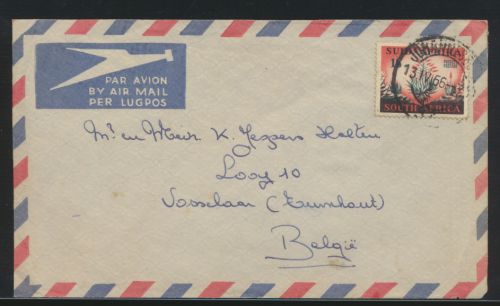 PAR AVION
BY AIR MAIL
PER LUGPOS
SUID-AFRIKA
SOUTH AFRICA
Mr en Mevr K. Jespers Holten
Looy 10
Vosselaar (Turnhout)
België